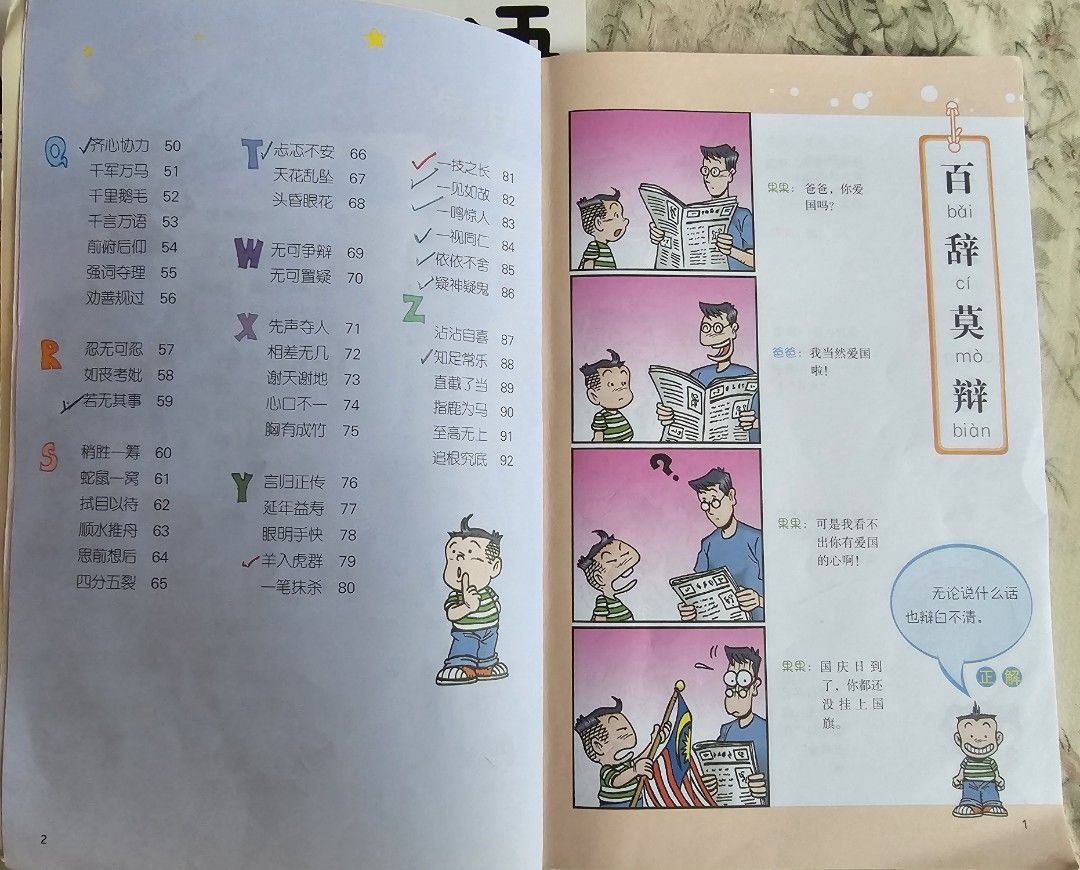 Q
齐心协力 50
千军万马 51
千里鹅毛 52
千言万语 53
前俯后仰 54
强词夺理 55
劝善规过 56
R
忍无可忍 57
如丧考妣 58
若无其事 59
S
稍胜一筹 60
蛇鼠一窝 61
拭目以待 62
顺水推舟 63
思前想后 64
四分五裂 65
T
忐忑不安 66
天花乱坠 67
头昏眼花 68
W
无可争辩 69
无可置疑 70
X
先声夺人 71
相差无几 72
谢天谢地 73
心口不一 74
胸有成竹 75
Y
言归正传 76
延年益寿 77
眼明手快 78
羊入虎群 79
一笔抹杀 80
一技之长 81
一见如故 82
一鸣惊人 83
一视同仁 84
依依不舍 85
疑神疑鬼 86
Z
沾沾自喜 87
知足常乐 88
直截了当 89
指鹿为马 90
至高无上 91
追根究底 92
2
百
bǎi
辞
cí
莫
mò
辩
biàn
果果：爸爸，你爱
国吗？
爸爸：我当然爱国
啦！
?
果果：可是我看不
出你有爱国
的心啊！
果果：国庆日到
了，你都还
没挂上国
旗。
无论说什么话
也辩白不清。
正解
1